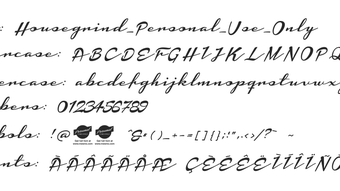 : Housegrind_Personal_Use_Only
ercase: ABCDEFGHIJKLMNOPQ
ercase: abcdefghijklmnopqrstuvwxy
bers: 0123456789
bols: !@ $ ^&*()_+-=[]{};:"',.<>/?` ~
ents: ÀÁÂÃÄÅÆ ÇÈÉÊËÌÍÎÏÑ